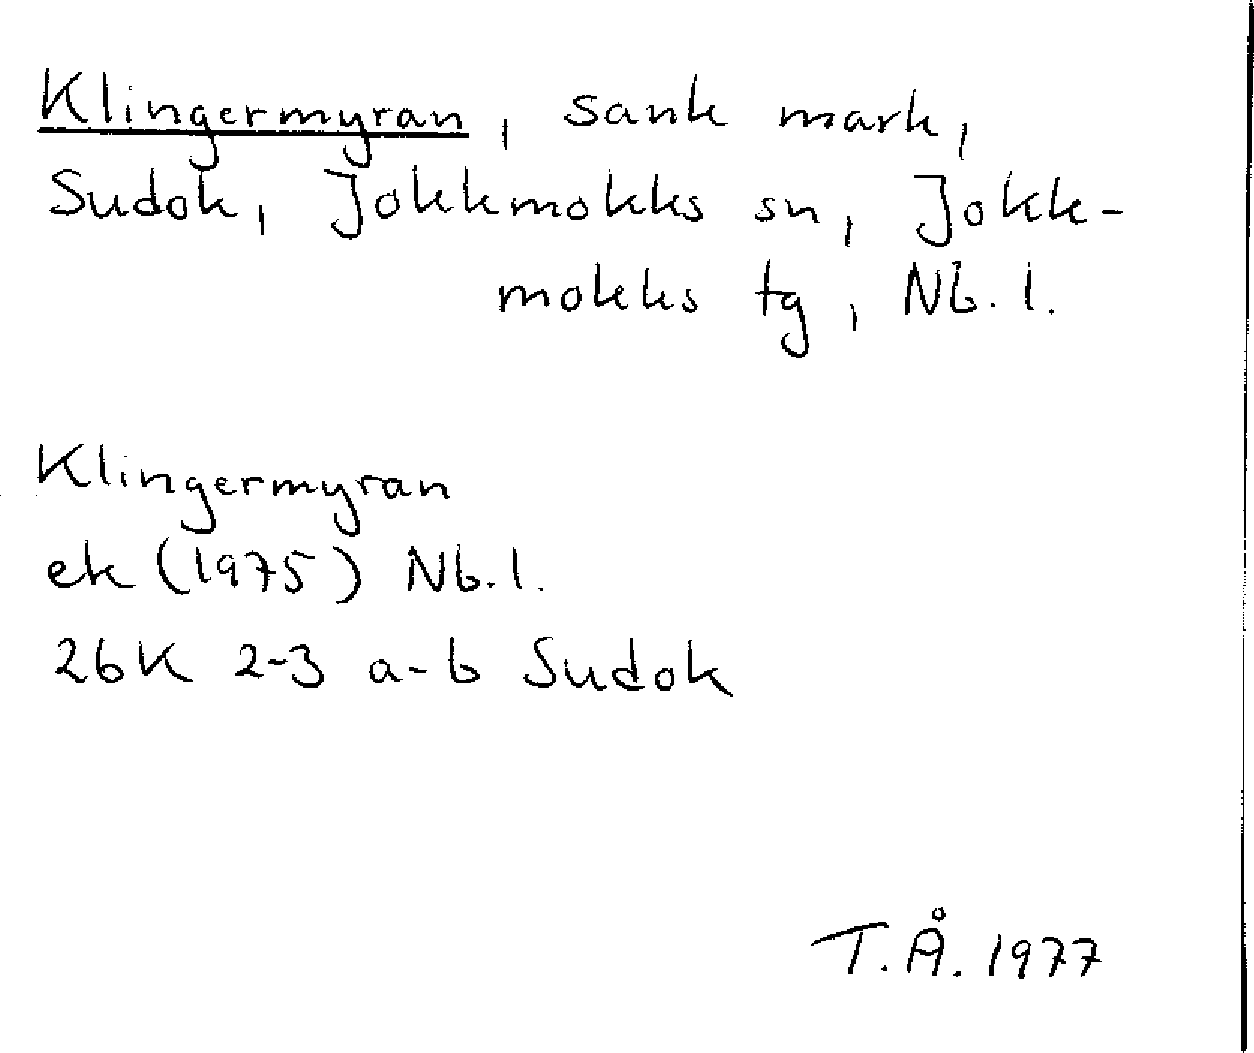 Klingermyran, sank mark,
Sudok, Jokkmokks sn, Jokk-
mokks tg, Nb. l.
Klingermyran
ek (1975) Nb. l.
26K 2-3 a-b Sudok
T.Å. 1977